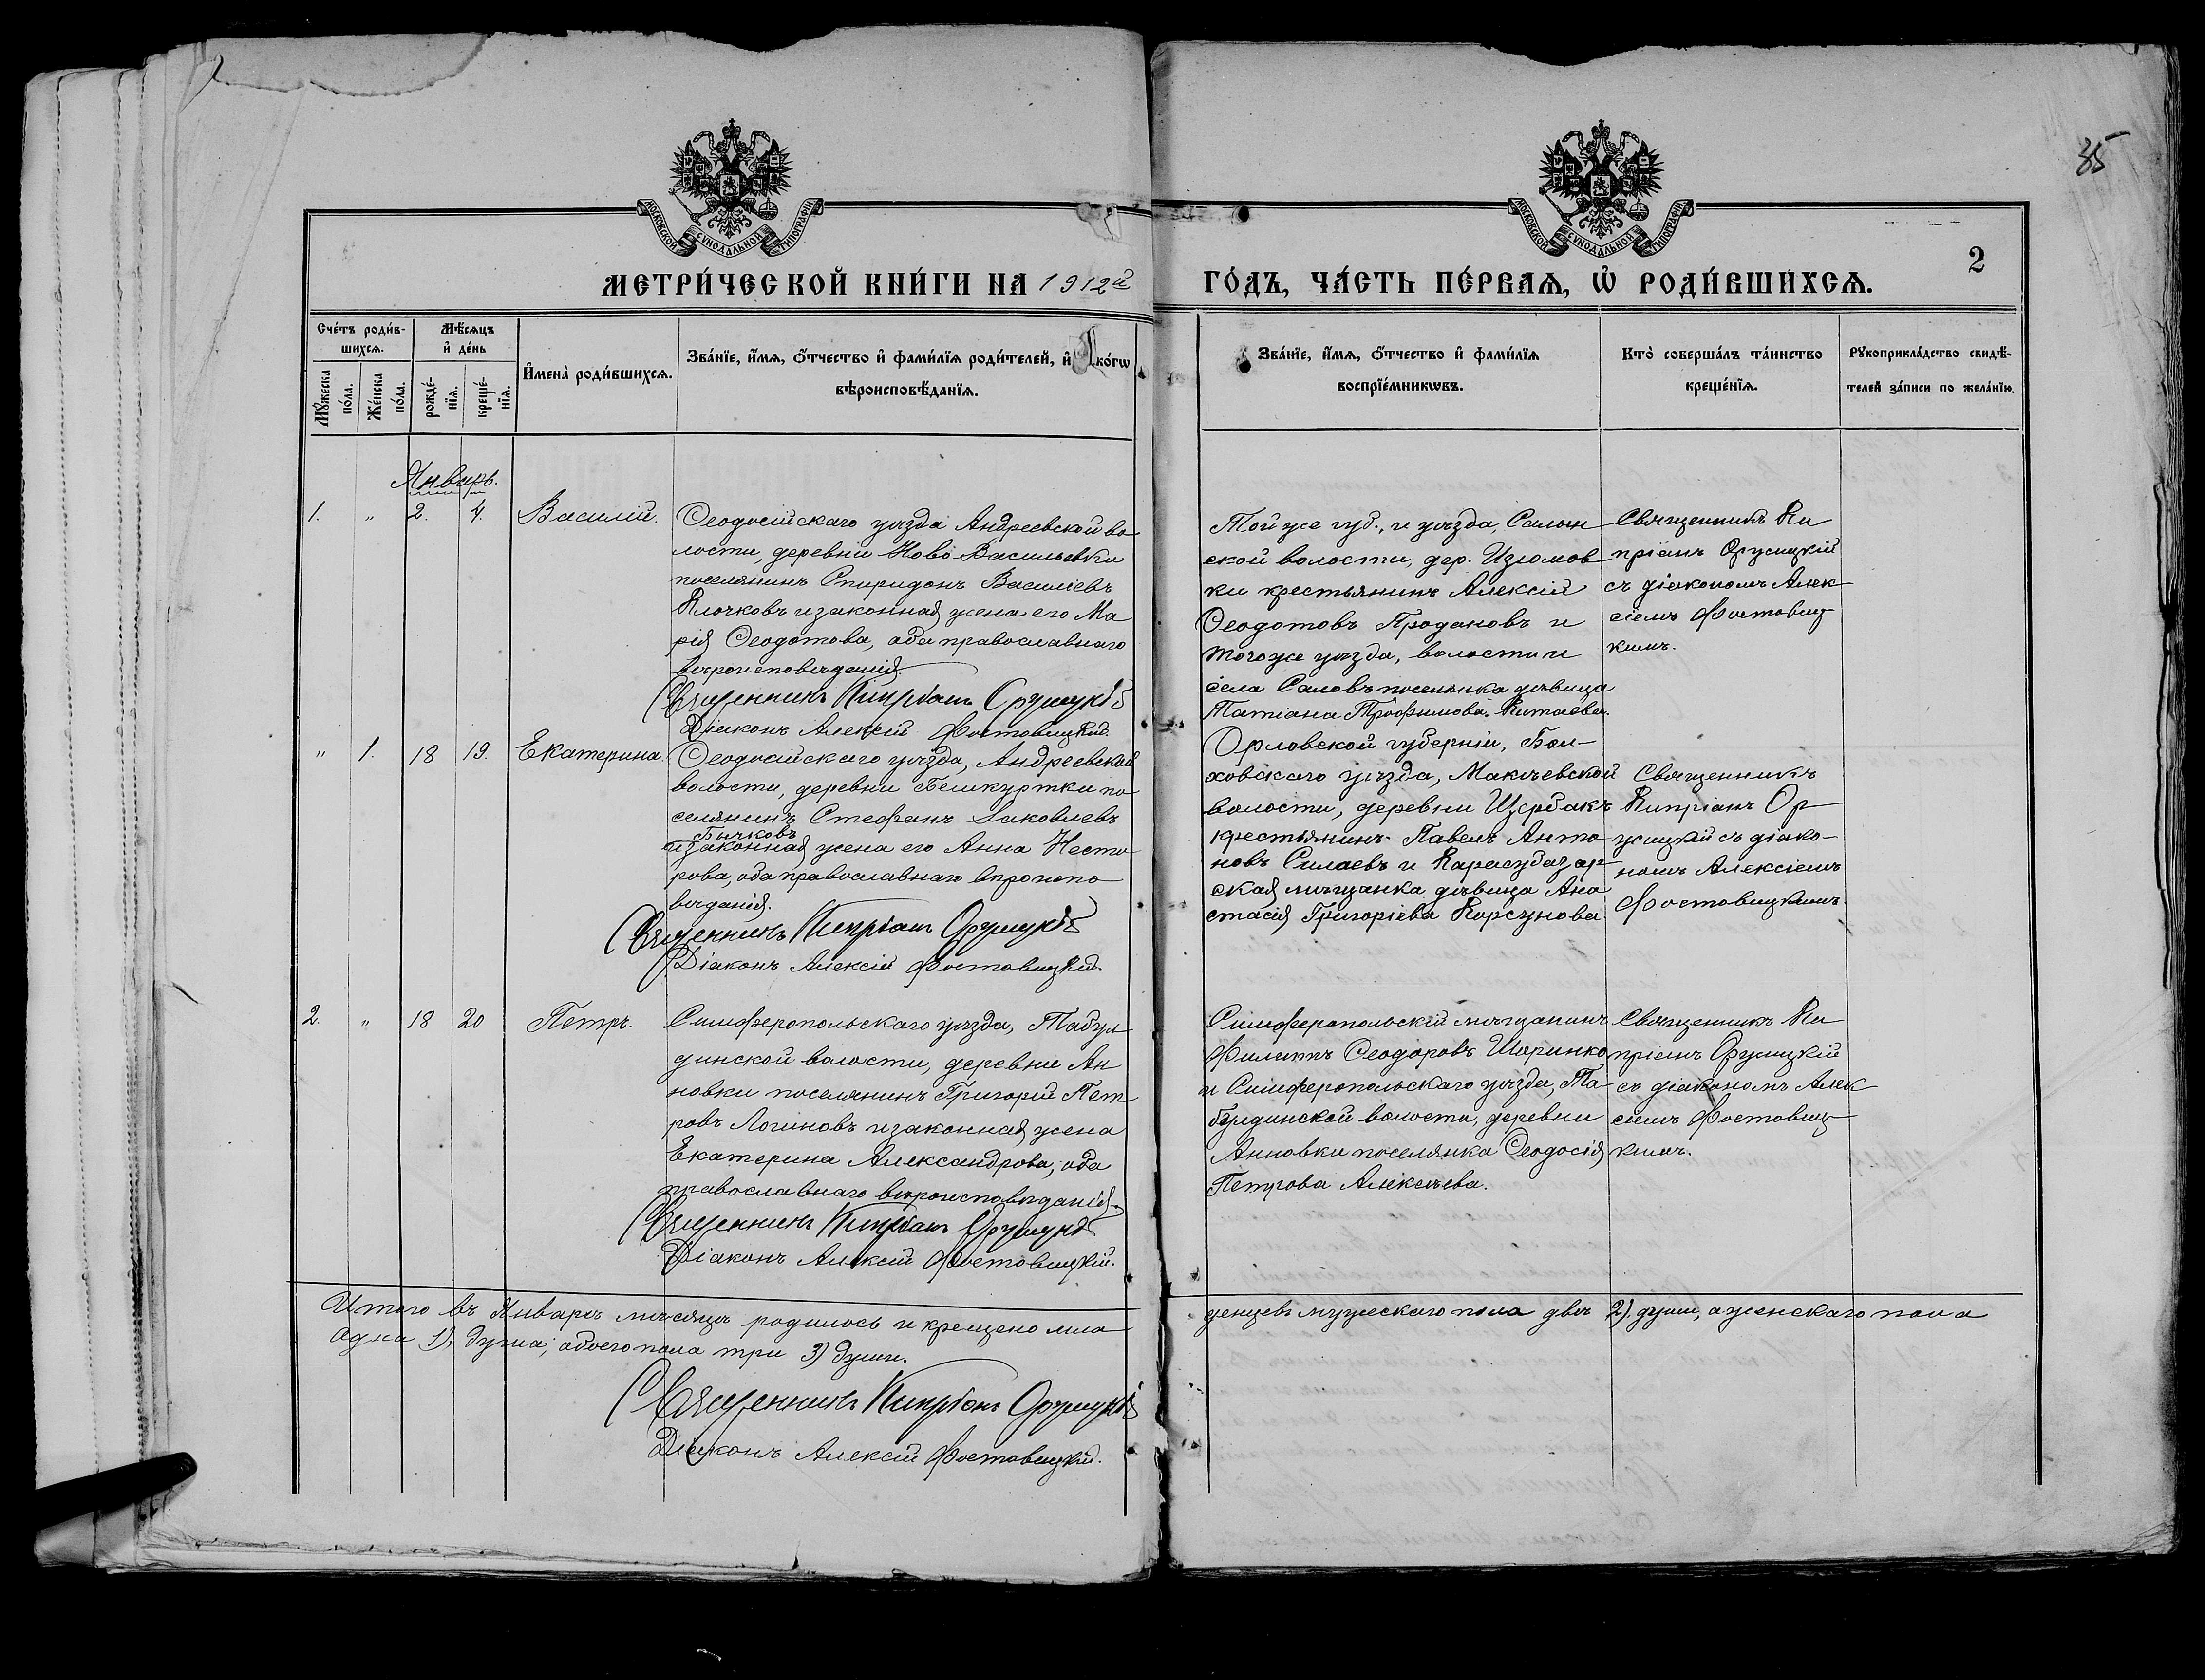 35
МОСКОВСКОЙ СѴНОДАЛЬНОЙ ТИПОГРАФІИ
МОСКОВСКОЙ СѴНОДАЛЬНОЙ ТИПОГРАФІИ
2
МЕТРИ́ЧЕСКОЙ КНИ́ГИ НА 1912й ГО́ДЪ, ЧА́СТЬ ПЕ́РВАѦ, Ѡ҆ РОДИ́ВШИХСѦ.
Сче́тъ роди́в-
шихсѧ.
Мꙋ́жеска по́ла.
Же́нска по́ла.
Мѣ́сѧцъ
и҆ де́нь
рожде́-
нїѧ.
креще́-
нїѧ.
И҆мена̀ роди́вшихсѧ.
Зва́нїе, и҆́мѧ, ѻ҆́тчество и҆ фами́лїѧ роди́телей, и҆ ко́гѡ
вѣроисповѣ́данїѧ.
Зва́нїе, и҆́мѧ, ѻ҆́тчество и҆ фами́лїѧ
воспрїе́мникѡвъ.
Кто̀ соверша́лъ та́инство
креще́нїѧ.
Рꙋкоприкла́дство свидѣ́-
телей за́писи по жела́нїю.
Январь.
1. " 2. 4. Василій.
Ѳеодосійскаго уѣзда Андреевской во
лости, деревни Ново Васильевки
поселянинъ Спиридонъ Василіевъ
Клочковъ и законная жена его Ма
рія Ѳеодотова, оба православнаго
вѣроисповѣданія.
Священникъ Кипріанъ Оружицкій
Діаконъ Алексій Фостовицкій.
Той же губ., и уѣзда, Салын
ской волости, дер. Изюмов
ки крестьянинъ Алексій
Ѳеодотовъ Продановъ и
того же уѣзда, волости и
села Саловъ поселянка дѣвица
Татіана Трофимова Китаева.
Священникъ Ки
пріанъ Оружицкій
съ діакономъ Алек
сіемъ Фостовиц
кимъ.
" 1. 18 19. Екатерина
Ѳеодосійскаго уѣзда, Андреевской
волости, деревни Бешкуртки по
селянинъ Стефанъ Іаковлевъ
Бычковъ
и законная жена его Анна Несто
рова, оба православнаго вѣроиспо
вѣданія.
Священникъ Кипріанъ Оружицкій
Діаконъ Алексій Фостовицкій.
Орловской губерніи, Бол-
ховскаго уѣзда, Макѣевской
волости, деревни Щербакъ
крестьянинъ Павелъ Анто
новъ Силаевъ и Карасубазар
ская мѣщанка дѣвица Ана
стасія Григоріева Корсунова
Священникъ
Кипріанъ Ор
ужицкій съ діако-
номъ Алексіемъ
Фостовицкимъ
2. " 18 20 Петръ.
Симферопольскаго уѣзда, Табул
динской волости, деревни Ан
новки поселянинъ Григорій Пет
ровъ Логиновъ и законная жена
Екатерина Александрова, оба
православнаго вѣроисповѣданія.
Священникъ Кипріанъ Оружицкій
Діаконъ Алексій Фостовицкій.
Симферопольскій мѣщанинъ
Филиппъ Ѳеодоровъ Шаринко
и Симферопольскаго уѣзда, Та-
булдинской волости, деревни
Анновки поселянка Ѳеодосія
Петрова Алексѣева.
Священникъ Ки
пріанъ Оружицкій
съ діакономъ Алек
сіемъ Фостовиц
кимъ.
Итого въ Январѣ мѣсяцѣ родилось и крещено мла денцевъ мужескаго пола двѣ 2). души, а женскаго пола
одна 1), душа; обоего пола три 3) души.
Священникъ Кипріанъ Оружицкій
Діаконъ Алексій Фостовицкій.